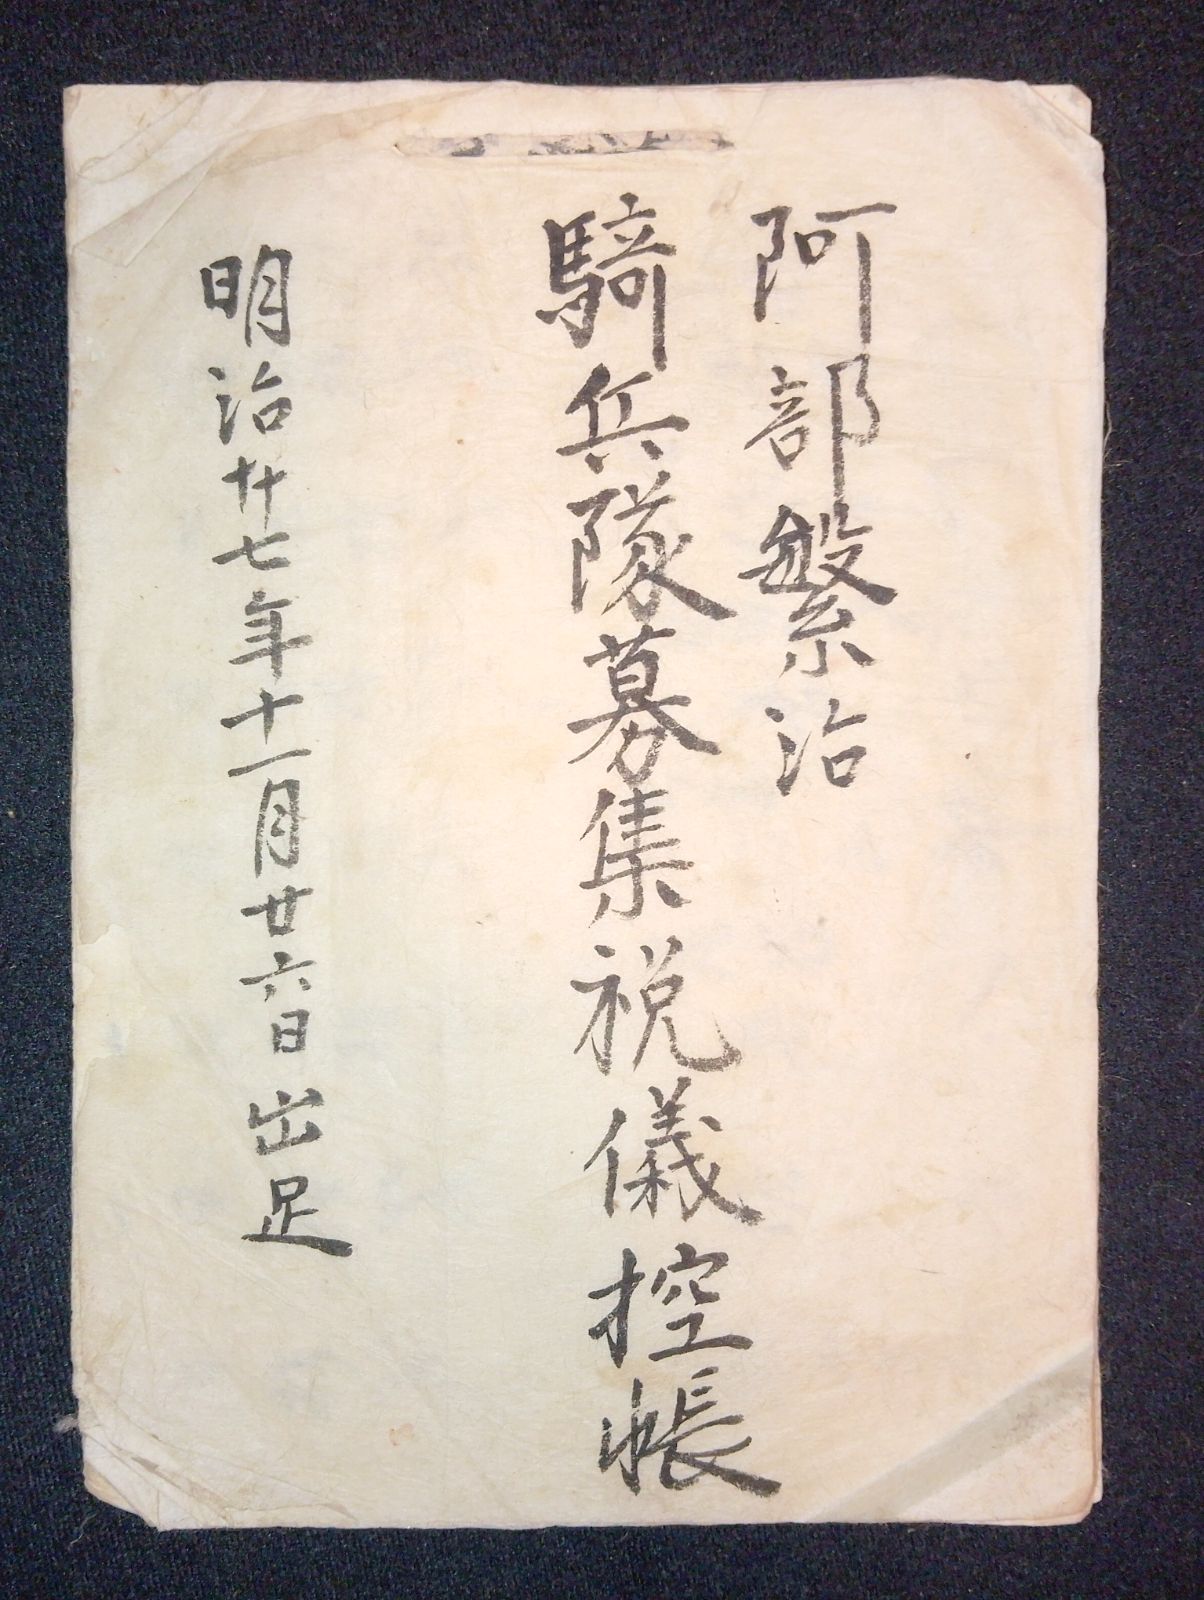 阿部繁治
騎兵隊募集祝儀控帳
明治廿七年十一月廿六日出足